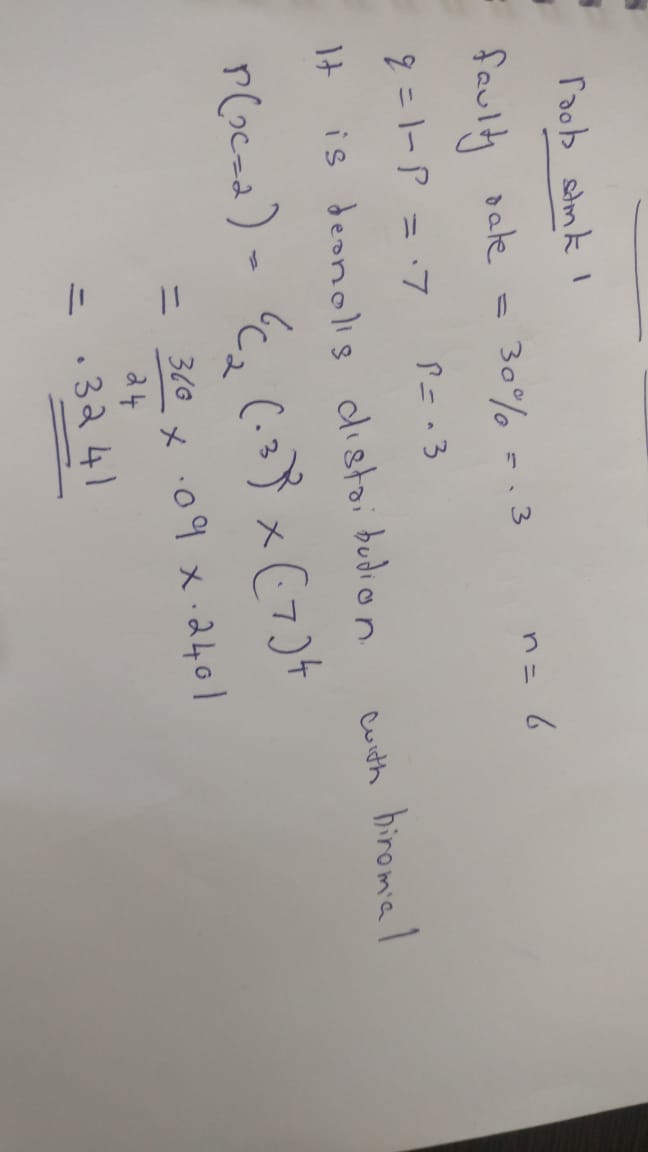 Prob stmt 1
faulty rate = 30% = .3 n = 6
q = 1 - P = .7 P = .3
It is bernolis distribution with binomial
P(x=2) = 6C2 (.3)2 × (.7)4
= 360/24 × .09 × .2401
= .3241